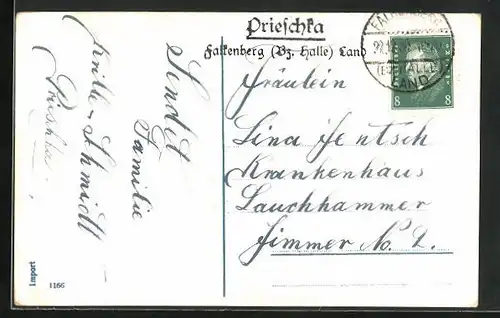 Prieschka
Falkenberg (Bz. Halle) Land
8 8
Fräulein
Lina Jentsch
Krankenhaus
Lauchhammer
Zimmer No. 2.
Sendet
Familie
Schmidt
Prieschka
Import
1166